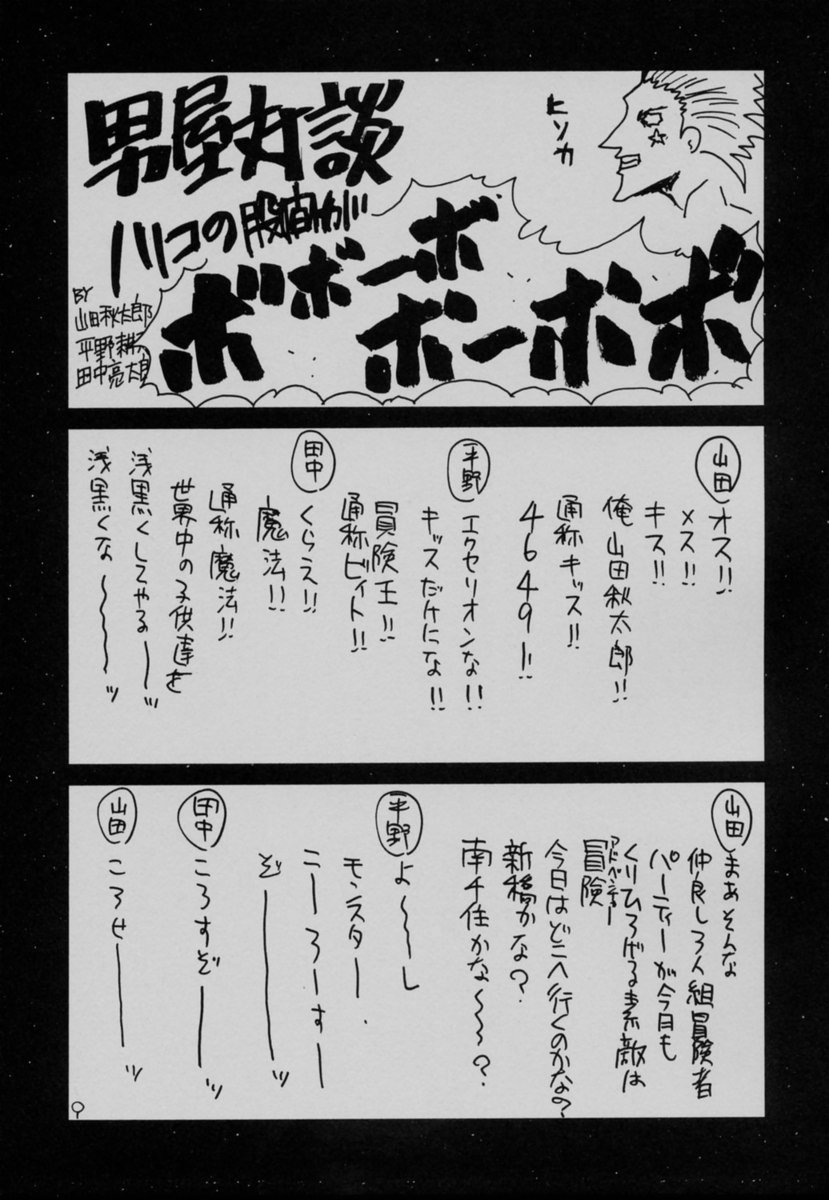 男屋対談
ハコの股間が
ボボボーボ
ボーボボ
ヒソカ
BY
山田秋太郎
平野耕太
田中亮太郎
山田
オス!!
メス!!
キス!!
俺山田秋太郎!!
通称キッス!!
4649ー!!
平野
エクセリオンな!!
キッスだけにな!!
冒険王!!
通称ビィト!!
田中
くらえ!!
魔法!!
通称魔法!!
世界中の子供達を
浅黒くしてやる――ッ
浅黒くな〜〜〜ッ
山田
まあそんな
仲良し3人組冒険者
パーティーが今日も
くりひろげる素敵な
冒険
アドベンチャー
今日はどこへ行くのかな?
新橋かな?
南千住かな〜〜?
平野
よ〜〜し
モンスター
こーろーすー
ぞ――――ッ
田中
ころすぞ―――ッ
山田
ころせ―――ッ
9